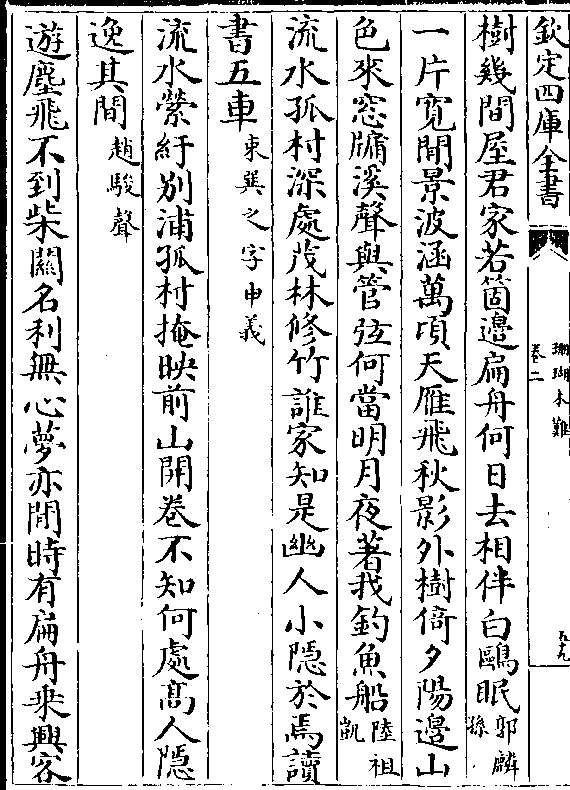 欽定四庫全書
珊瑚木難
卷二
五九
樹幾間屋君家若箇邊扁舟何日去相伴白鷗眠郭麟孫
一片寛閒景波涵萬頃天雁飛秋影外樹倚夕陽邊山
色來窓牖溪聲與管弦何當明月夜著我釣魚船陸祖凱
流水孤村深處茂林修竹誰家知是幽人小隠於焉讀
書五車東巽之字申義
流水縈紆别浦孤村掩映前山開巻不知何處髙人隠
逸其間趙駿聲
遊塵飛不到柴關名利無心夢亦閒時有扁舟乗興客